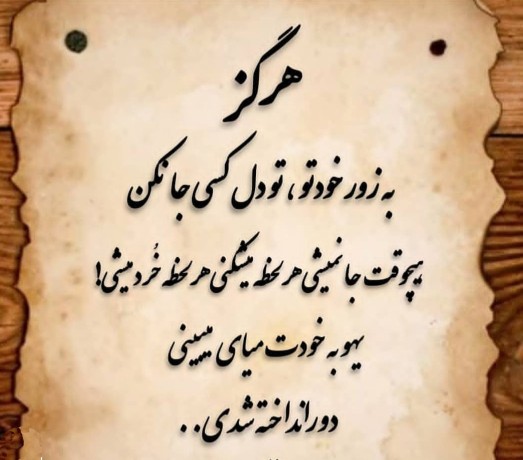 هرگز
به زور خودتو، تو دل کسی جا نکن
هیچوقت جا نمیشی هر لحظه میشکنی هر لحظه خُرد میشی!
یهو به خودت میای میبینی
دور انداخته شدی..